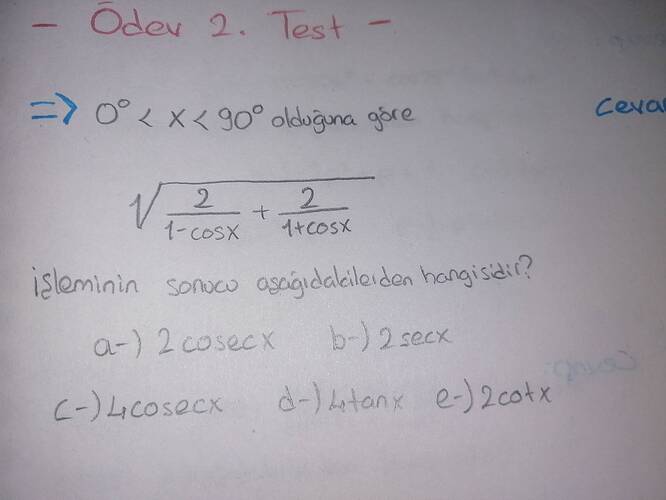 - Ödev 2. Test -
=> 0° < x < 90° olduğuna göre
Ceva
√ 2/(1-cosx) + 2/(1+cosx)
işleminin sonucu aşağıdakilerden hangisidir?
a-) 2cosecx b-) 2secx
c-) 4cosecx d-) 4tanx e-) 2cotx